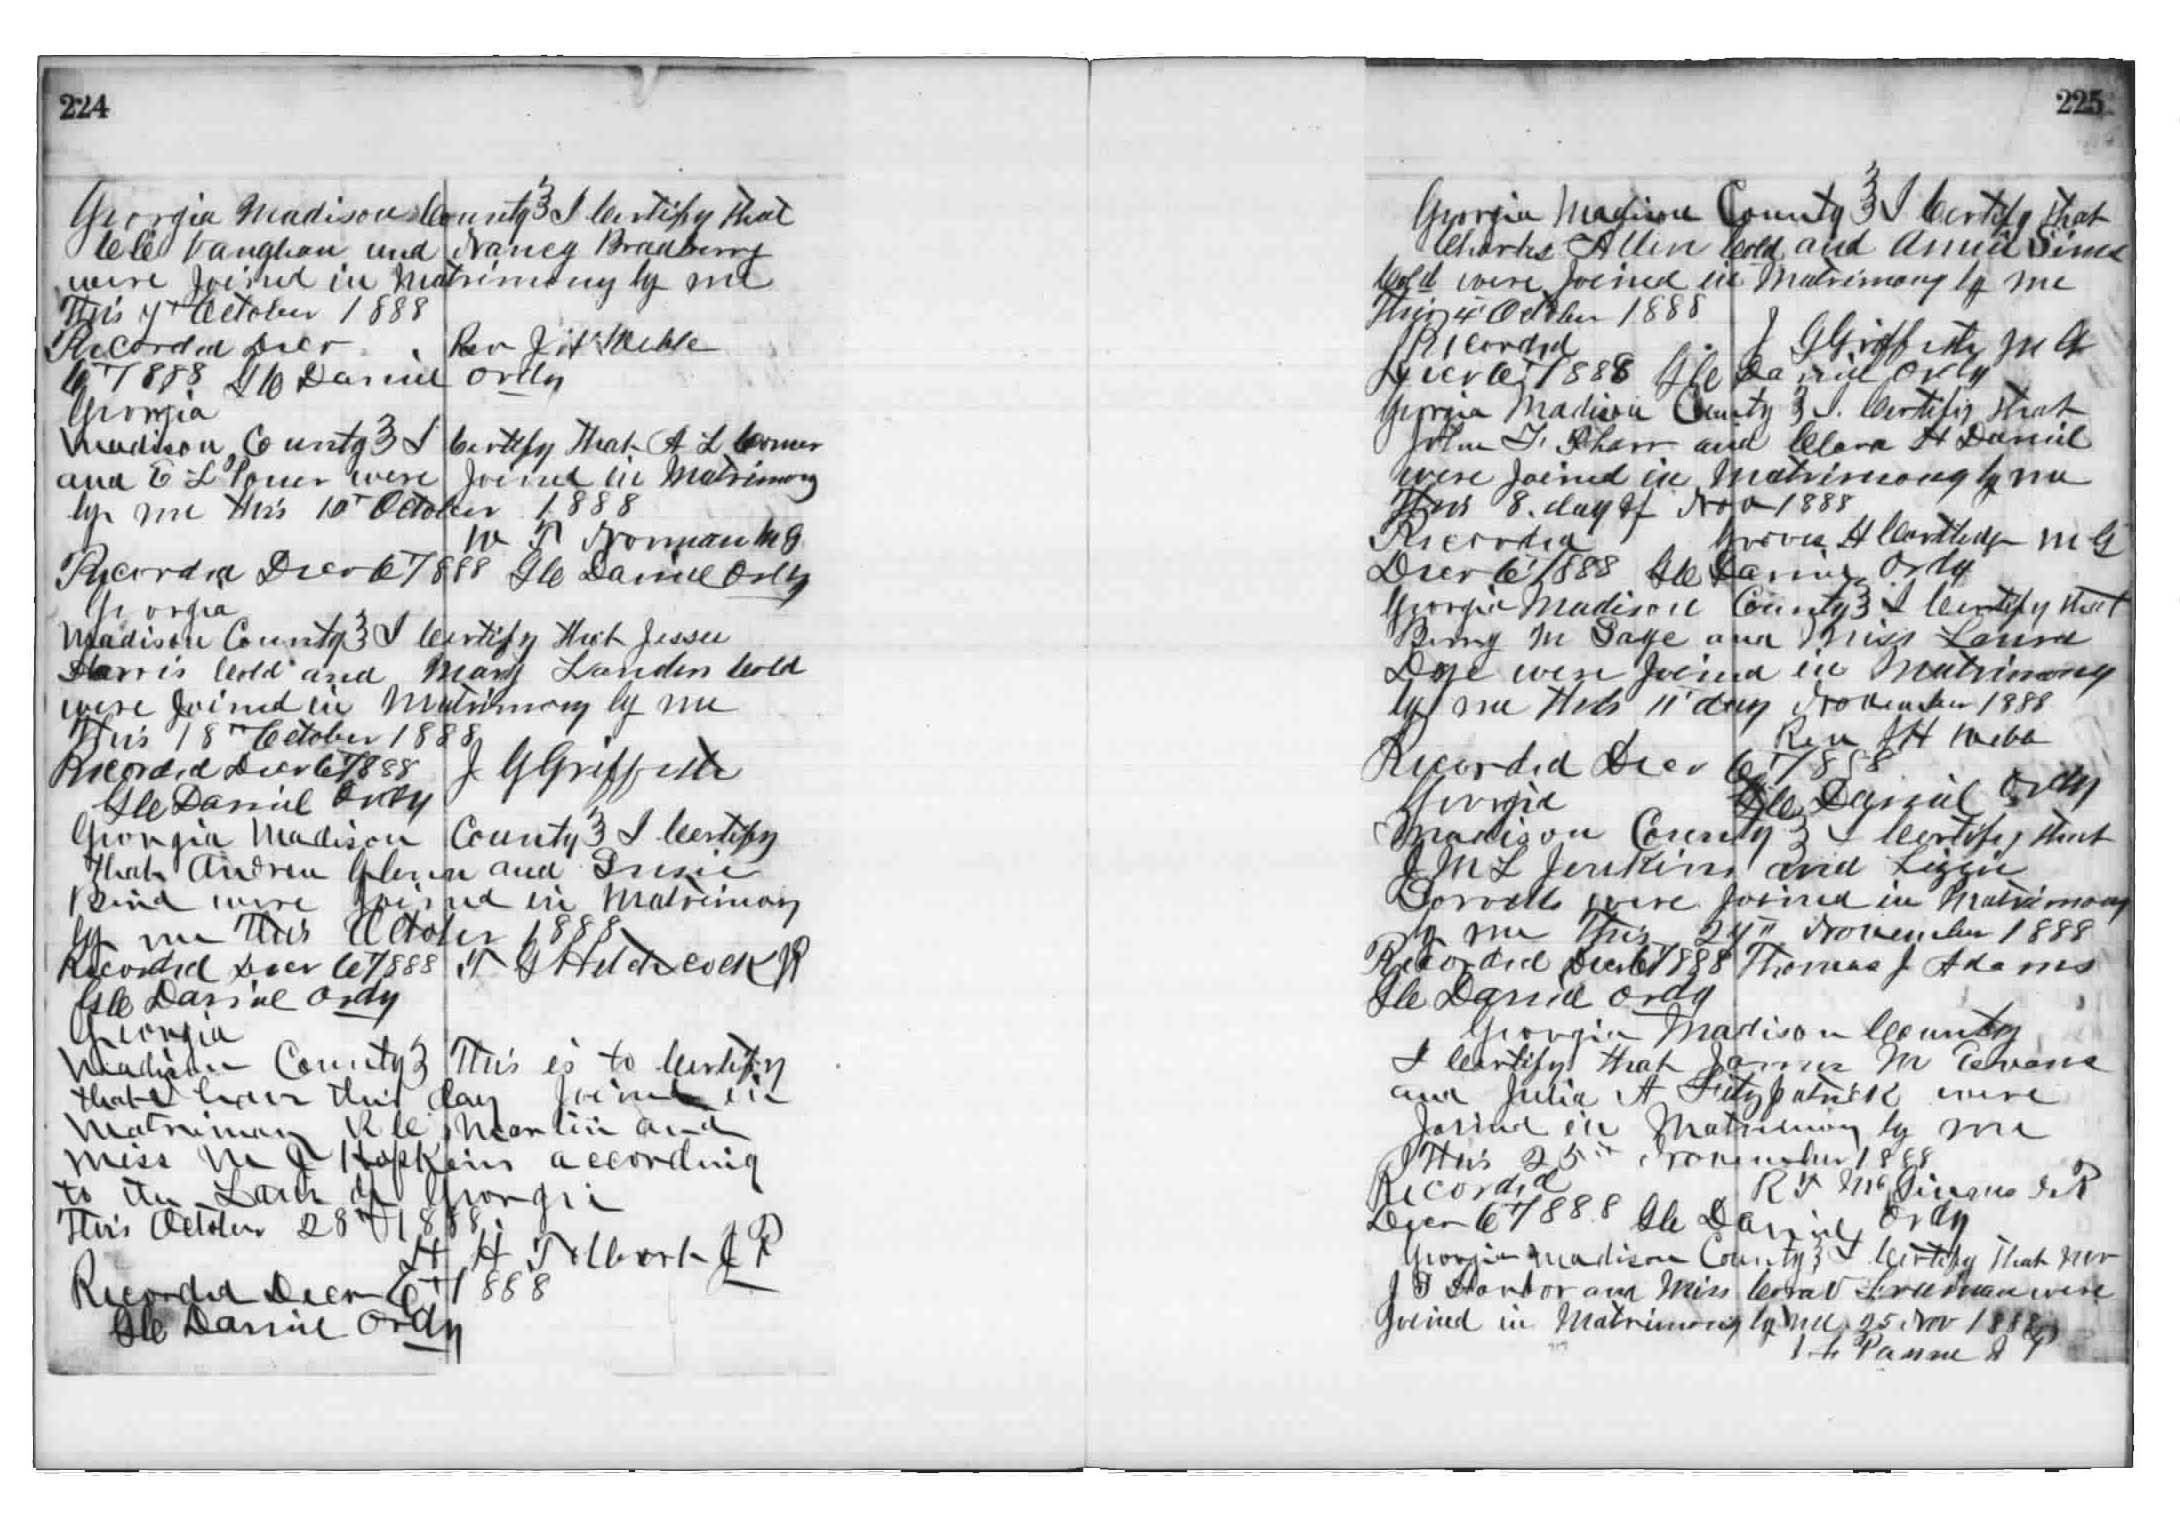 224
Georgia Madison County I Certify that
Vaughan and Nancy Bradberry
were Joined in Matrimony by me
This 7th October 1888
Recorded Decr Rev J H Webb
6th 1888 G C Daniel Ordy
Georgia
Madison County I Certify that A L Comer
and E L Power were Joined in Matrimony
by me this 10th October 1888
W T Norman M G
Recorded Decr 6th 1888 G C Daniel Ordy
Georgia
Madison County I Certify that Jessee
Harris Cold and Mary Landers Cold
were Joined in Matrimony by me
This 18th October 1888
Recorded Decr 6th 1888 J G Griffeth
G C Daniel Ordy
Georgia Madison County I Certify
that Andrew Glenn and Susie
Bird were Joined in Matrimony
by me This October 1888
Recorded Decr 6th 1888 T G Hitchcock JP
G C Daniel Ordy
Georgia
Madison County This is to Certify
that I have this day Joined in
Matrimony R C Martin and
Miss M J Hopkins according
to the Laws of Georgia
This October 28th 1888
H H Tolbert J P
Recorded Decr 6th 1888
G C Daniel Ordy
225
Georgia Madison County I Certify that
Charles Allen Cold and Annie Sims
Cold were Joined in Matrimony by me
This 4th October 1888
Recorded J G Griffeth M G
Decr 6th 1888 G C Daniel Ordy
Georgia Madison County I Certify that
John T Pharr and Clara H Daniel
were Joined in Matrimony by me
This 8 day of Nov 1888
Recorded Groves H Cartledge M G
Decr 6th 1888 G C Daniel Ordy
Georgia Madison County I Certify that
Berry M Saye and Miss Laura
Doge were Joined in Matrimony
by me this 11th day November 1888
Rev J H Webb
Recorded Decr 6th 1888
Georgia G C Daniel Ordy
Madison County I Certify that
J M L Jenkins and Lizzie
Sorrells were Joined in Matrimony
by me This 24th November 1888
Recorded Decr 6th 1888 Thomas J Adams
G C Daniel Ordy
Georgia Madison County
I Certify that James M Evans
and Julia A Fitzpatrick were
Joined in Matrimony by me
This 25th November 1888
Recorded R T
Decr 6th 1888 G C Daniel Ordy
Georgia Madison County I Certify that Mr
J T Harbor and Miss Cora V Freeman were
Joined in Matrimony by me 25 Nov 1888
J P